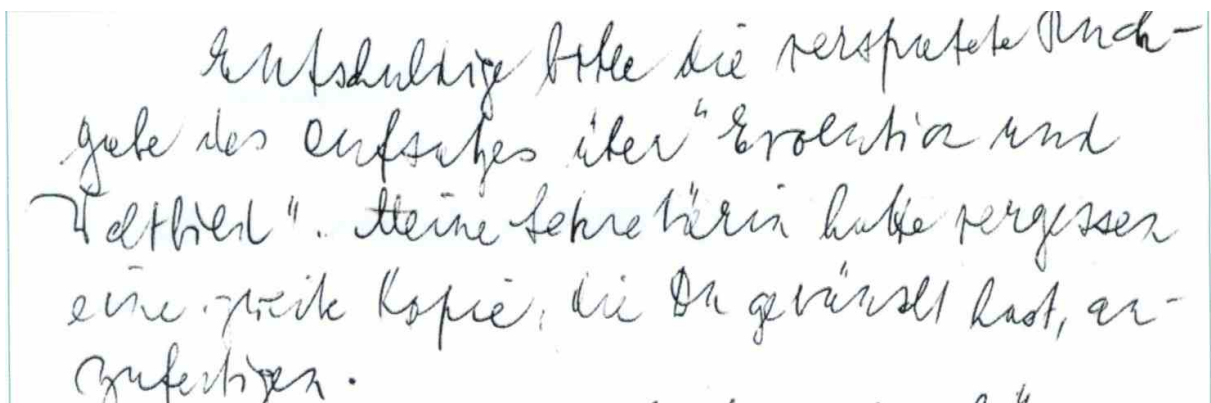 Entschuldige bitte die verspätete Rück-
gabe des Aufsatzes über "Evolution und
Weltbild". Meine Sekretärin hatte vergessen
eine zweite Kopie, die Du gewünscht hast, an-
zufertigen.